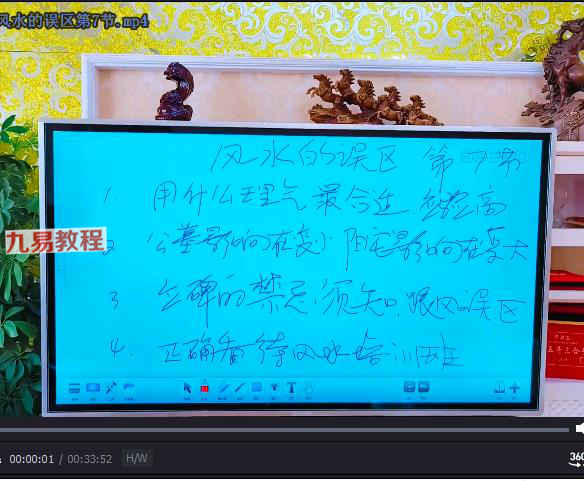 风水的误区第7节.mp4
风水的误区 第7节
1. 用什么理气最合适 高
九易教程
2 公墓影响在变小 阳宅影响在变大
3 立碑的禁忌须知 跟风误区
4. 正确看待风水培训班
00:00:01 / 00:33:52 H/W 360